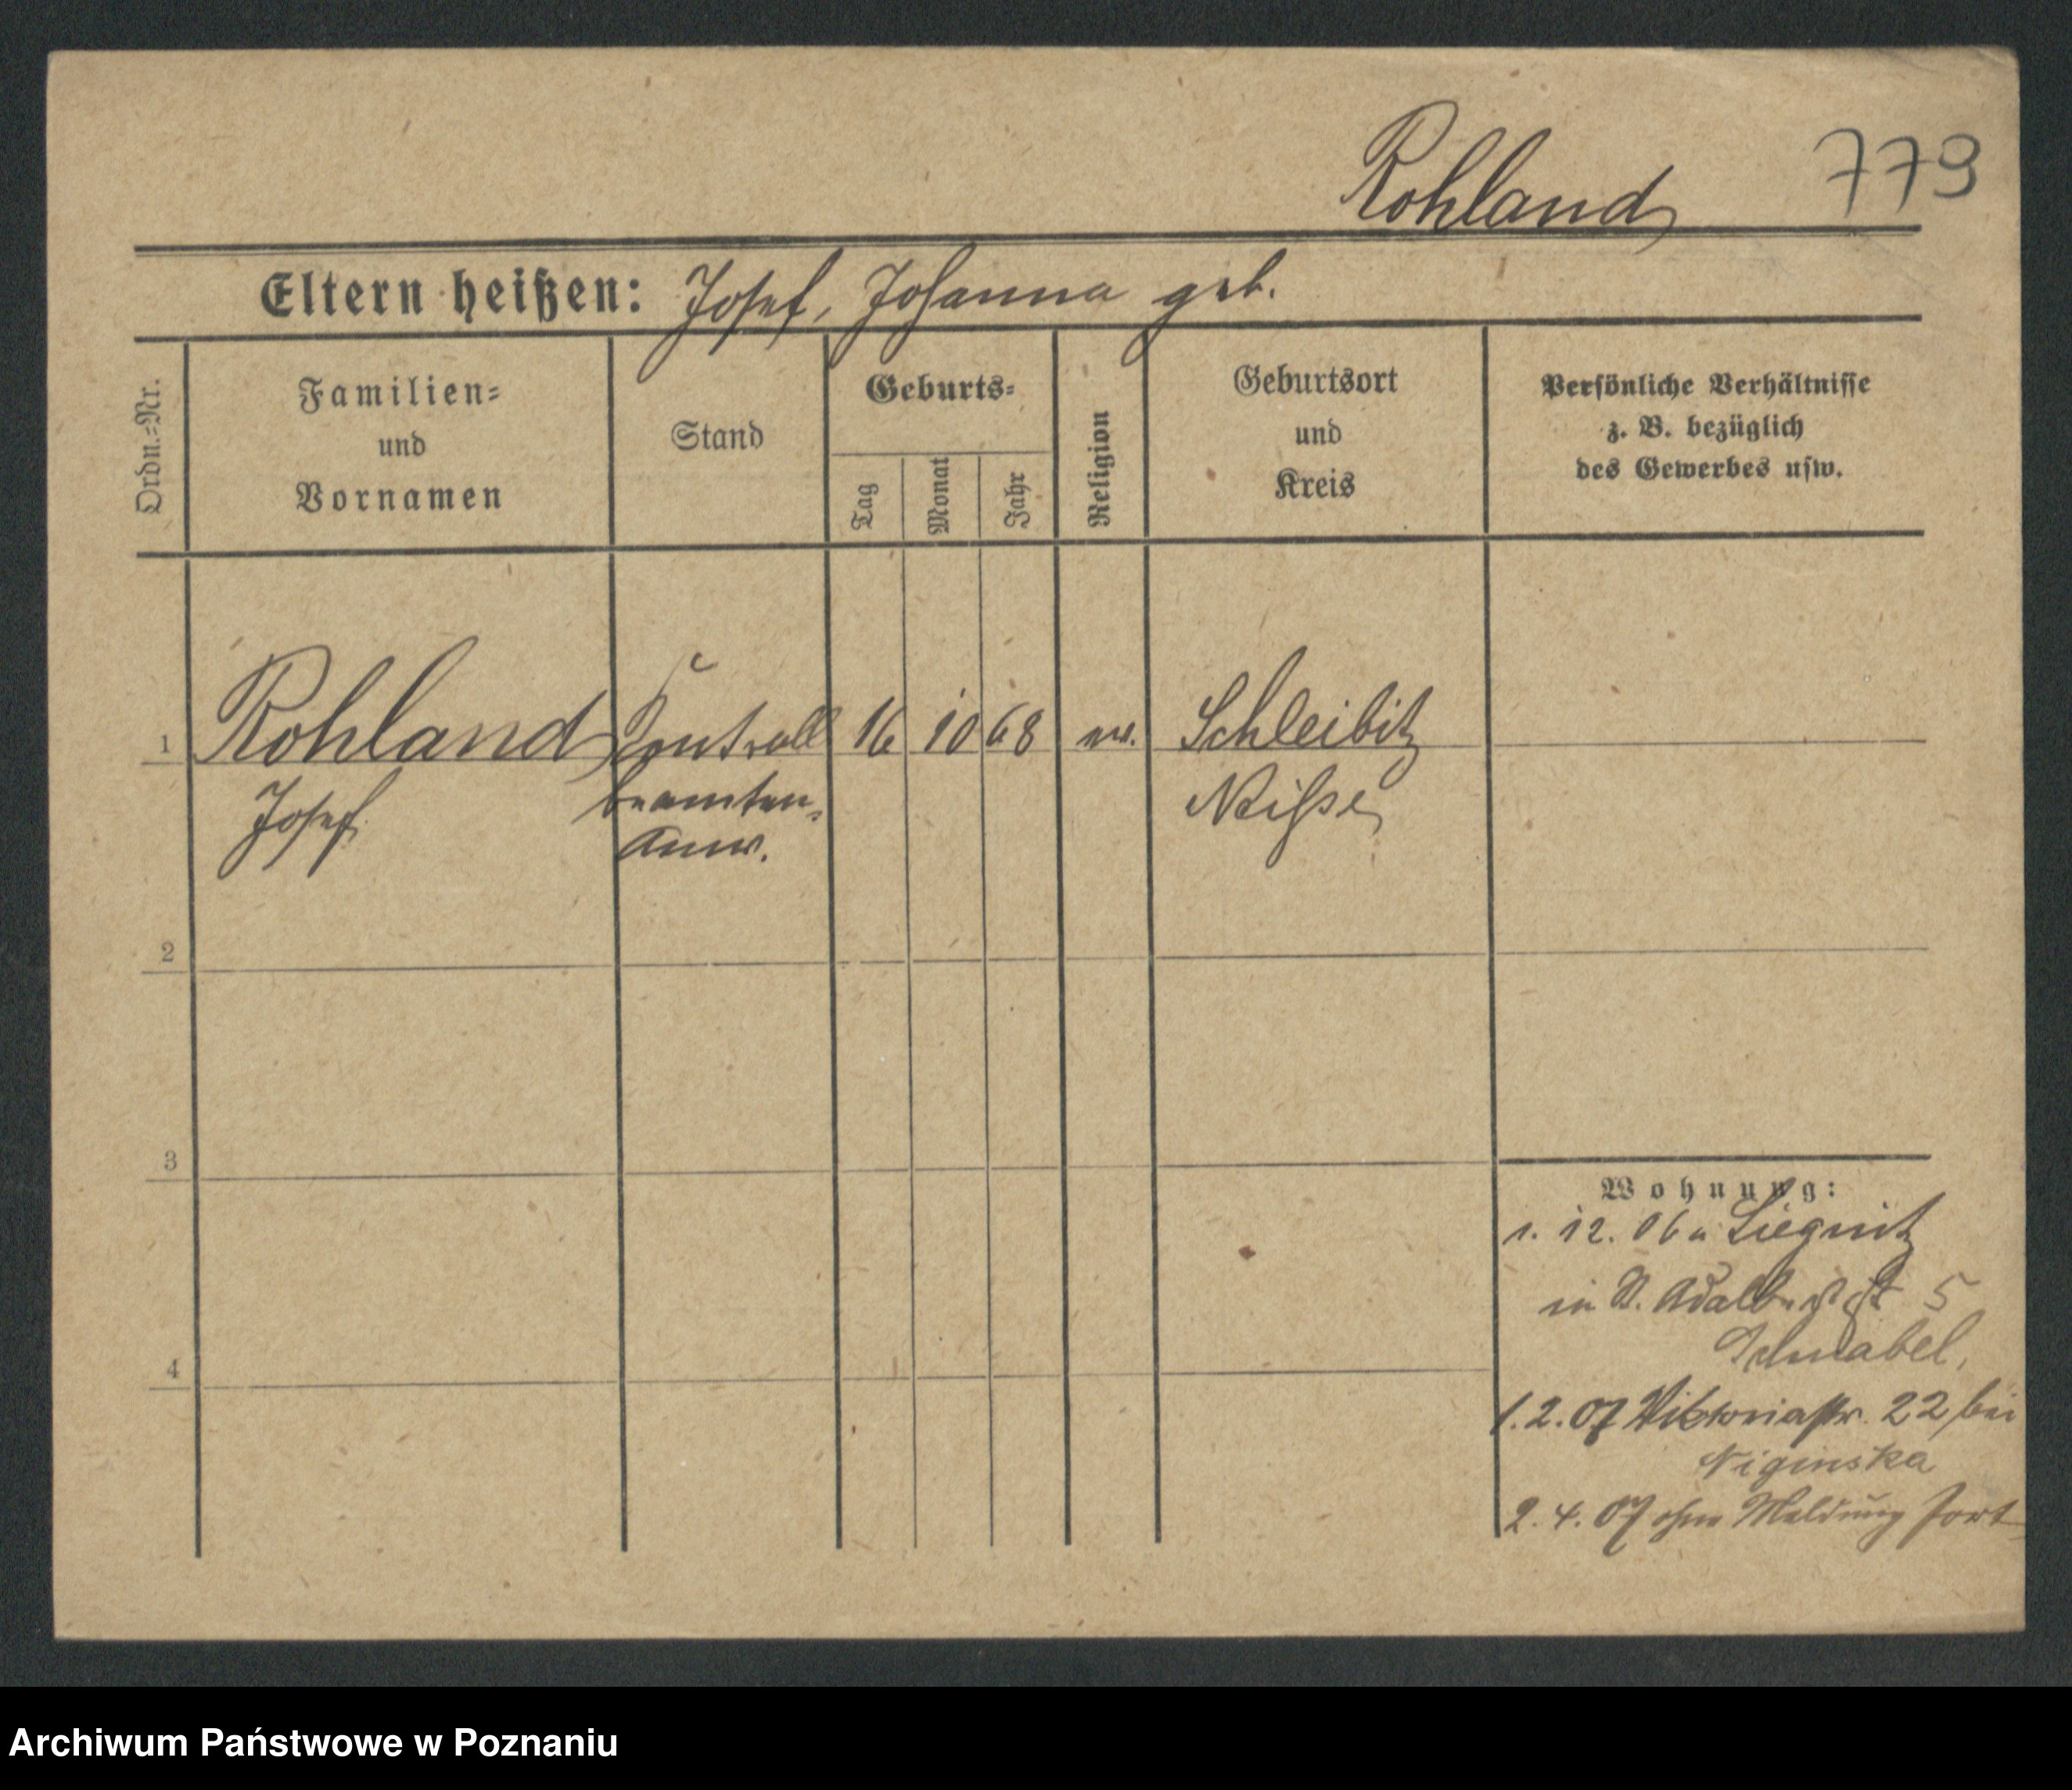 Rohland
779
Eltern heißen: Josef, Johanna geb.
Ordn.=Nr.
Familien=
und
Vornamen
Stand
Geburts=
Tag
Monat
Jahr
Religion
Geburtsort
und
Kreis
Persönliche Verhältnisse
z. B. bezüglich
des Gewerbes usw.
1 Rohland Kontroll 16 10 68 ev. Schleibitz
Josef beamten= Neiße
Anw.
2
3
4
Wohnung:
1. 12. 06 a Liegnitz
in St. Adalbertstr 5
Schnabel,
1.2.07 Viktoriastr. 22 bei
Niginska
2. 4. 07 ohne Meldung fort
Archiwum Państwowe w Poznaniu